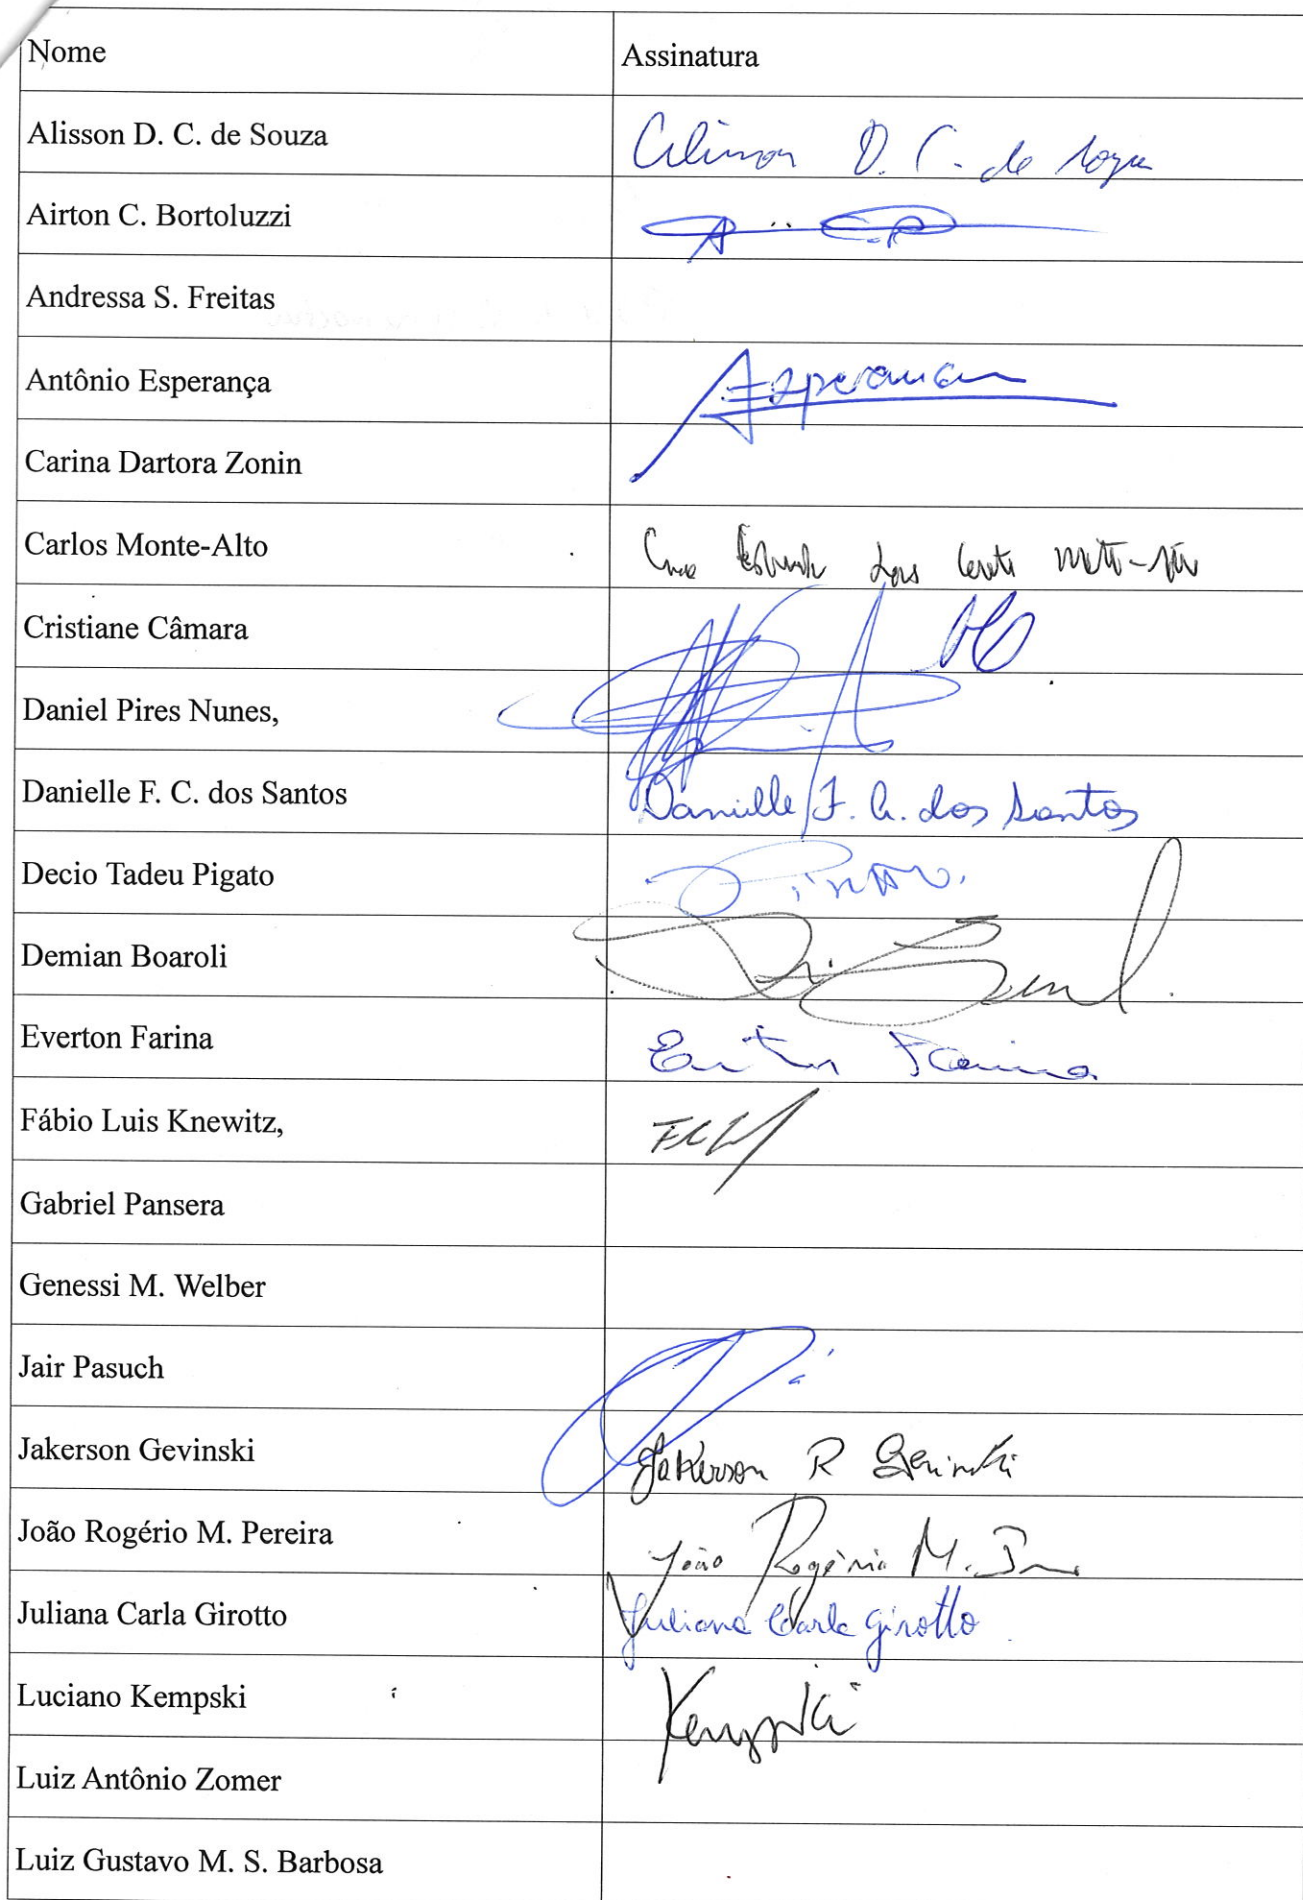 Nome Assinatura
Alisson D. C. de Souza Alisson D. C. de Souza
Airton C. Bortoluzzi
Andressa S. Freitas
Antônio Esperança
Carina Dartora Zonin
Carlos Monte-Alto
Cristiane Câmara
Daniel Pires Nunes,
Danielle F. C. dos Santos Danielle F. C. dos Santos
Decio Tadeu Pigato
Demian Boaroli
Everton Farina Everton Farina
Fábio Luis Knewitz,
Gabriel Pansera
Genessi M. Welber
Jair Pasuch
Jakerson Gevinski Jakerson R Gevinski
João Rogério M. Pereira João Rogério M.
Juliana Carla Girotto Juliana Carla Girotto
Luciano Kempski Kempski
Luiz Antônio Zomer
Luiz Gustavo M. S. Barbosa